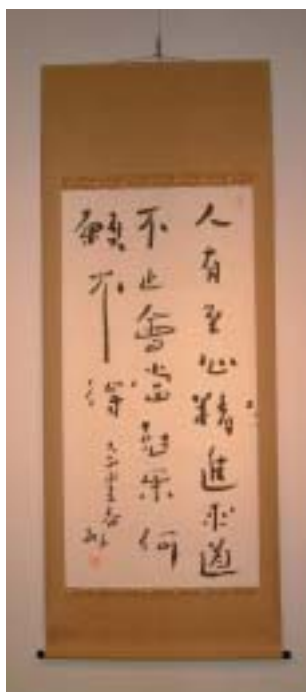 人有至心精進求道
不止會當剋果何
願不得